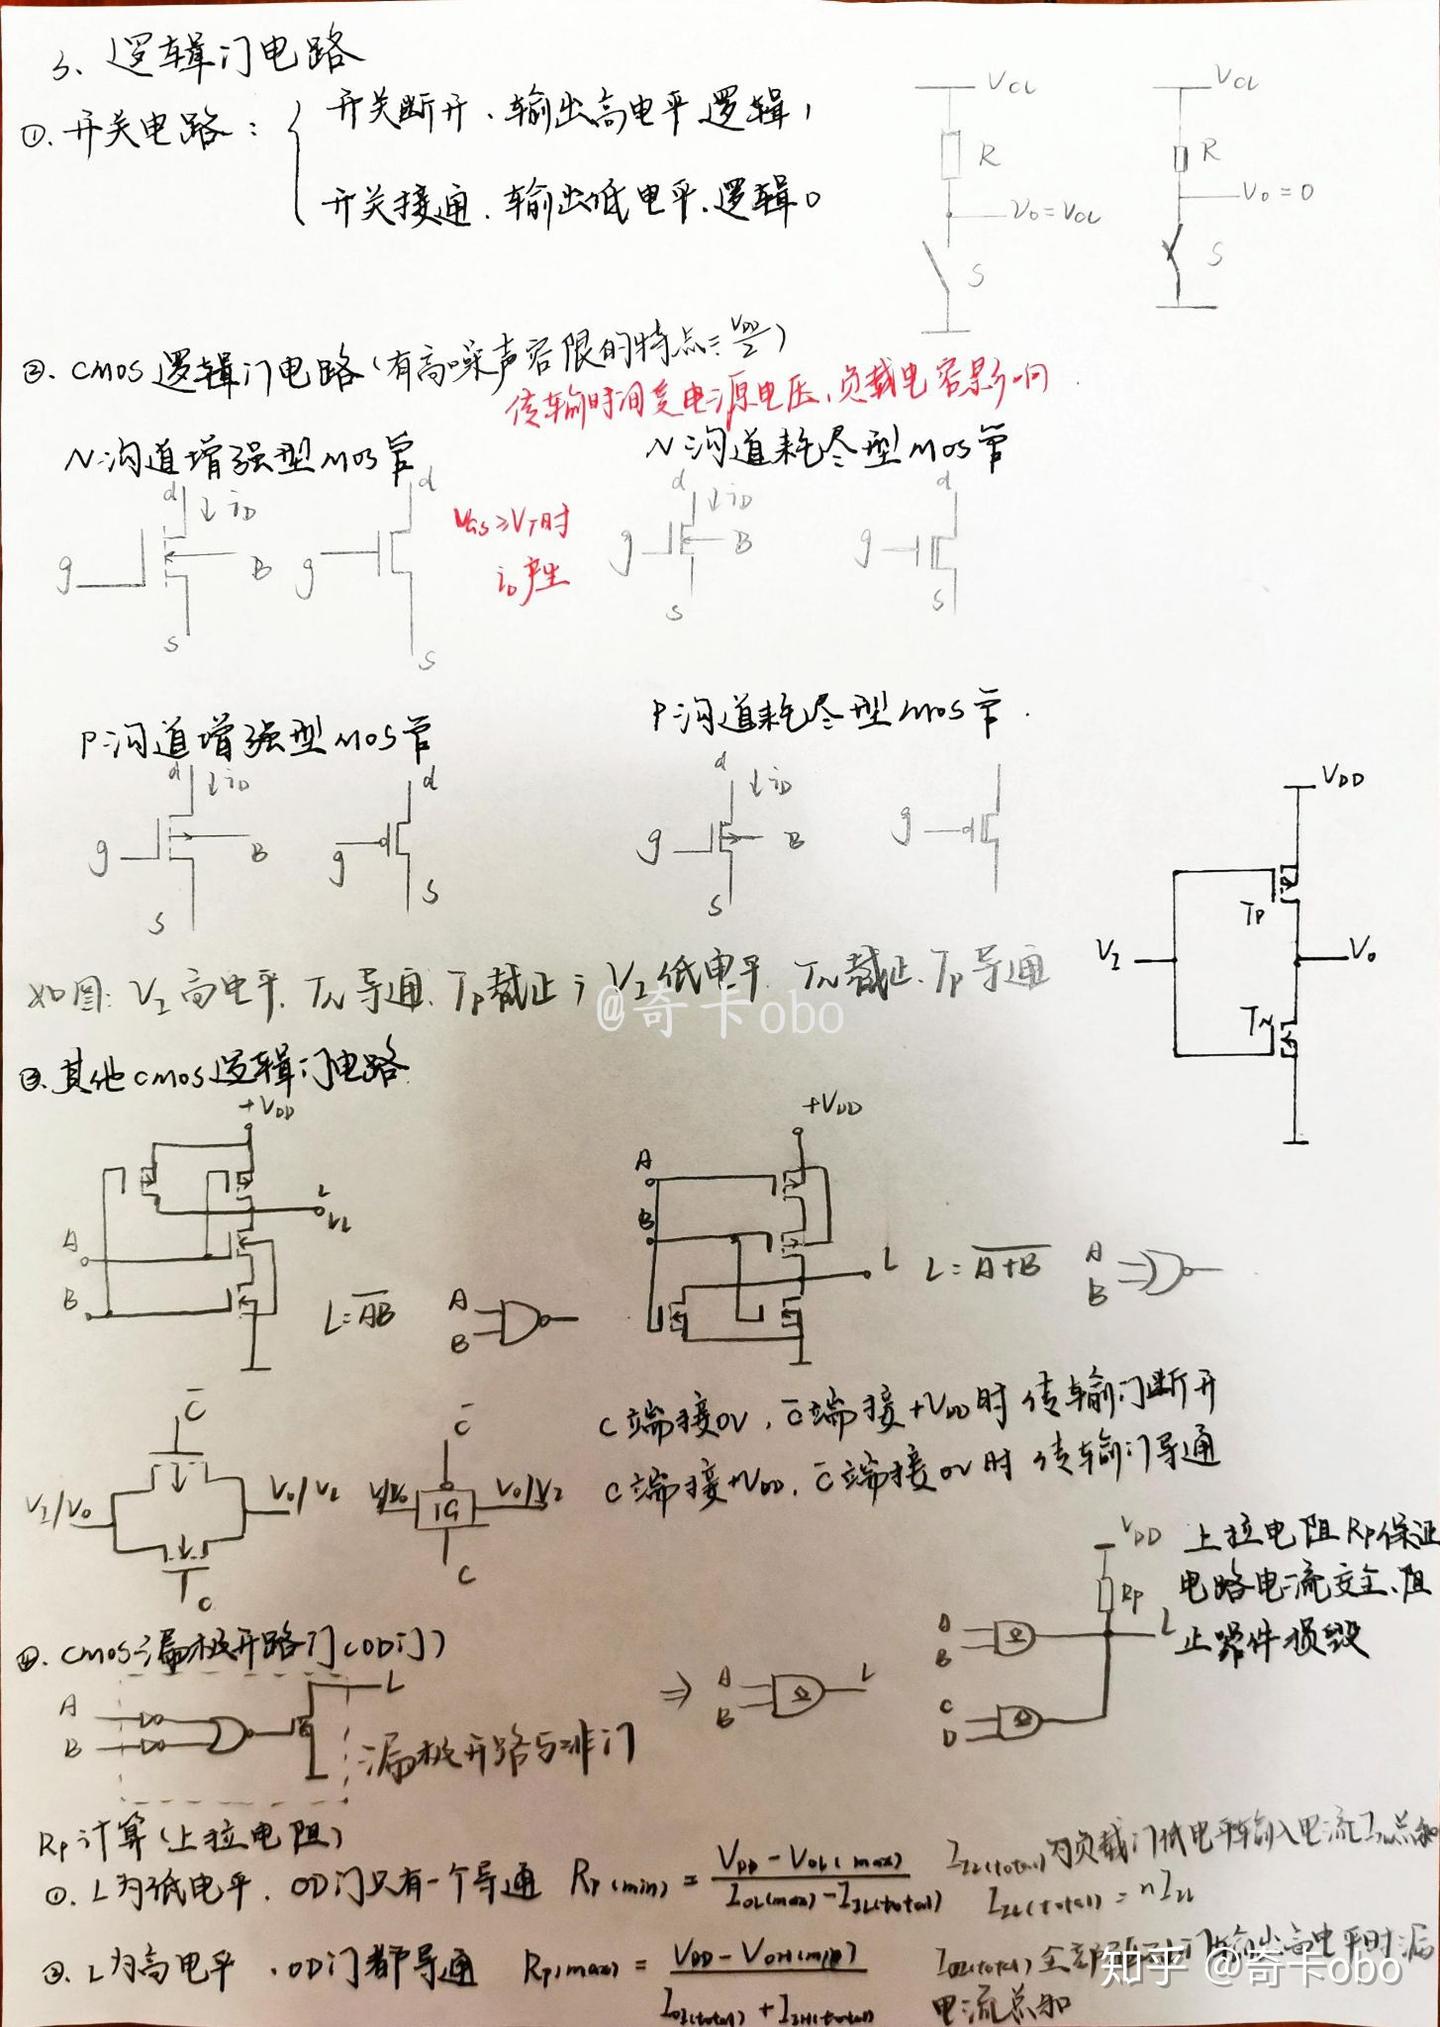 3、逻辑门电路
①.开关电路：
开关断开、输出高电平 逻辑1
开关接通、输出低电平、逻辑0
VCC
R
Vo=VCC
S
VCC
R
Vo=0
S
②.CMOS逻辑门电路(有高噪声容限的特点≈VDD/2)
传输时间受电源电压、负载电容影响
N沟道增强型MOS管
N沟道耗尽型MOS管
d
iD
g
B
s
d
g
s
VGS≥VT时
iD产生
d
iD
g
B
s
d
g
s
P沟道增强型MOS管
P沟道耗尽型MOS管
d
iD
g
B
s
d
g
s
d
iD
g
B
s
g
VDD
TP
VI
Vo
TN
如图：VI高电平、TN导通、TP截止；VI低电平 TN截止、TP导通
@奇卡obo
③.其他CMOS逻辑门电路
+VDD
L
A
B
L=\overline{AB}
A
B
+VDD
A
B
L
L=\overline{A+B}
A
B
C̄
VI/Vo
Vo/VI
C
C̄
VI/Vo
TG
Vo/VI
C
C端接0V，C̄端接+VDD时 传输门断开
C端接+VDD，C̄端接0V时 传输门导通
④.CMOS漏极开路门(OD门)
A
B
L
漏极开路与非门
⇒
A
B
L
VDD
Rp
A
B
L
C
D
上拉电阻Rp保证
电路电流安全、阻
止器件损毁
Rp计算(上拉电阻)
①.L为低电平、OD门只有一个导通 Rp(min) = (VDD-VOL(max))/(IOL(max)-IIL(total))
IIL(total)为负载门低电平输入电流IIL总和
IIL(total)=nIIL
②.L为高电平、OD门都导通 Rp(max) = (VDD-VOH(min))/(IOZ(total)+IIH(total))
IOZ(total)全部 门输出高电平时漏
电流总和
知乎 @奇卡obo